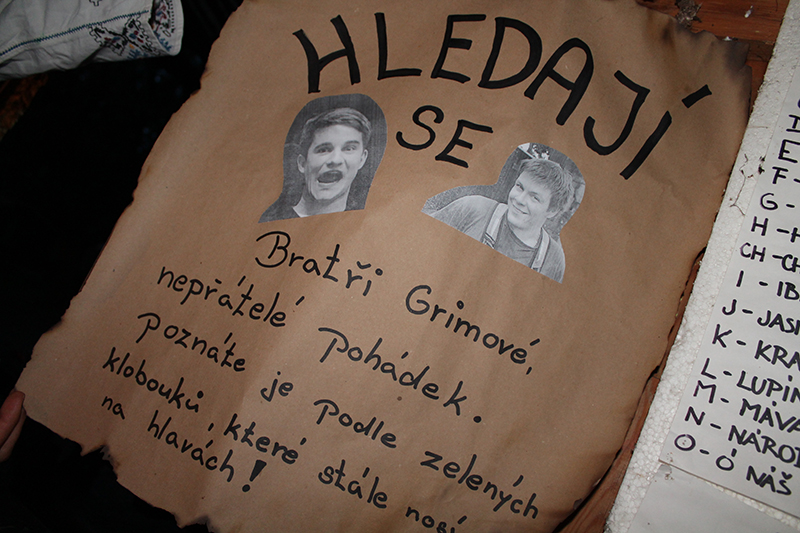 HLEDAJÍ
SE
Bratři Grimové,
nepřátelé pohádek.
poznáte je podle zelených
klobouků, které stále
na hlavách!
E
F-
G-
H-
CH-CH
I - IB
J-JASI
K-KRA
L-LUPIN
M-MÁVA
N-NÁROD
O-Ó NÁŠ